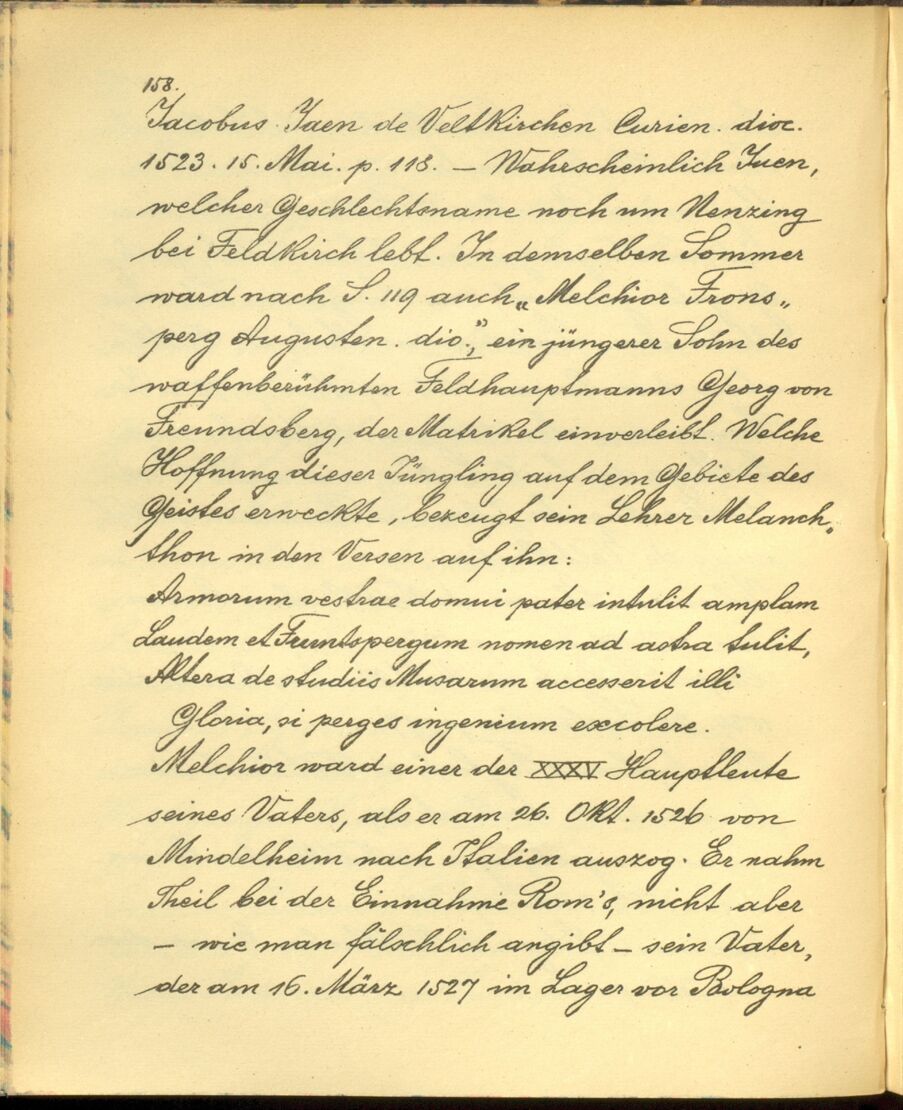 158.
Jacobus Jaen de Veltkirchen Curien. dioc.
1523. 15. Mai. p. 118. – Wahrscheinlich Juen,
welcher Geschlechtsname noch um Nenzing
bei Feldkirch lebt. In demselben Sommer
ward nach S. 119 auch „Melchior Frons„
perg Augusten. dio.”, ein jüngerer Sohn des
waffenberühmten Feldhauptmanns Georg von
Freundsberg, der Matrikel einverleibt. Welche
Hoffnung dieser Jüngling auf dem Gebiete des
Geistes erweckte, bezeugt sein Lehrer Melanch„
thon in den Versen auf ihn:
Armorum vestrae domui pater intulit amplam
Laudem et Fruntspergum nomen ad astra tulit,
Altera de studiis Musarum accesserit illi
Gloria, si perges ingenium excolere.
Melchior ward einer der XXXV Hauptleute
seines Vaters, als er am 26. Okt. 1526 von
Mindelheim nach Italien auszog. Er nahm
Theil bei der Einnahme Rom's, nicht aber
– wie man fälschlich angibt – sein Vater,
der am 16. März 1527 im Lager vor Bologna